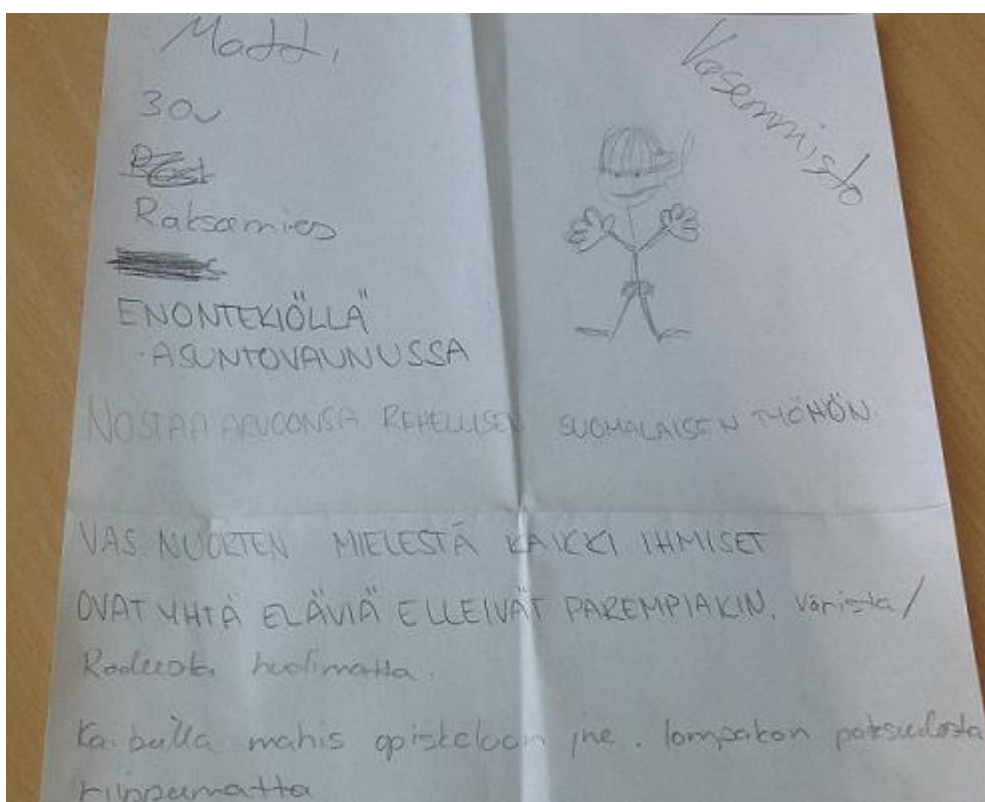 Matti,
Vasemmisto
30v
Raksamies
ENONTEKIÖLLÄ
ASUNTOVAUNUSSA
NOSTAA ARVOONSA REHELLISEN SUOMALAISEN TYÖHÖN.
VAS. NUORTEN MIELESTÄ KAIKKI IHMISET
OVAT YHTÄ ELÄVIÄ ELLEIVÄT PAREMPIAKIN. Väristä /
Rodusta huolimatta.
Kaikilla mahis opiskeluun jne. lompakon paksuudesta
riippumatta